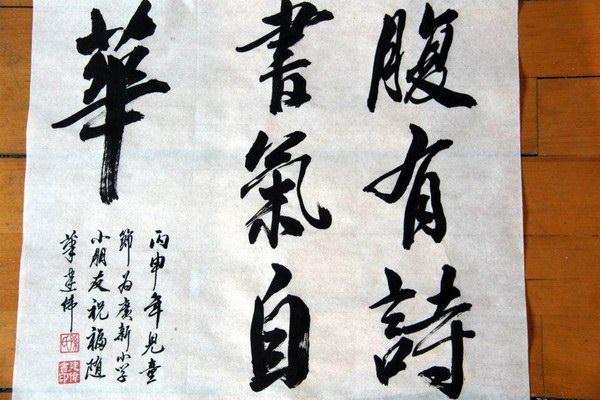 腹有詩
書氣自
華
丙申年兒童
節為廣新小學
小朋友祝福随
筆建偉
建偉書印